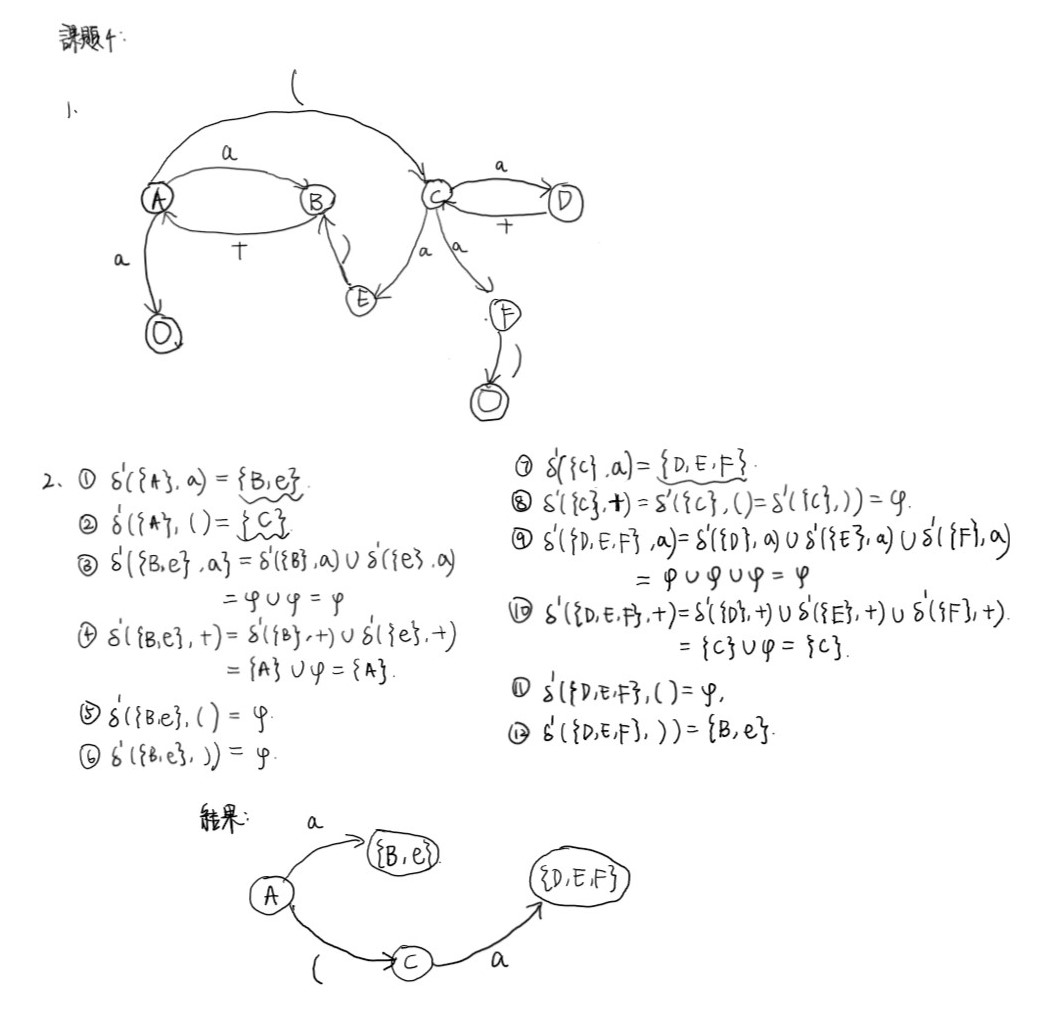 課題4:
1.
(
a
a
A
B
C
D
+
+
a
)
a
a
E
F
)
2、① δ'({A}, a) = {B,e}.
② δ'({A}, () = {C}.
③ δ'({B,e}, a} = δ'({B}, a) ∪ δ'({e}, a)
= φ ∪ φ = φ
④ δ'({B,e}, +) = δ'({B}, +) ∪ δ'({e}, +)
= {A} ∪ φ = {A}.
⑤ δ'({B,e}, () = φ.
⑥ δ'({B,e}, )) = φ.
⑦ δ'({C}, a) = {D,E,F}.
⑧ δ'({C}, +) = δ'({C}, () = δ'({C}, )) = φ.
⑨ δ'({D,E,F}, a) = δ'({D}, a) ∪ δ'({E}, a) ∪ δ'({F}, a)
= φ ∪ φ ∪ φ = φ
⑩ δ'({D,E,F}, +) = δ'({D}, +) ∪ δ'({E}, +) ∪ δ'({F}, +).
= {C} ∪ φ = {C}.
⑪ δ'({D,E,F}, () = φ,
⑫ δ'({D,E,F}, )) = {B,e}.
結果:
a
{B,e}.
{D,E,F}
A
(
C
a